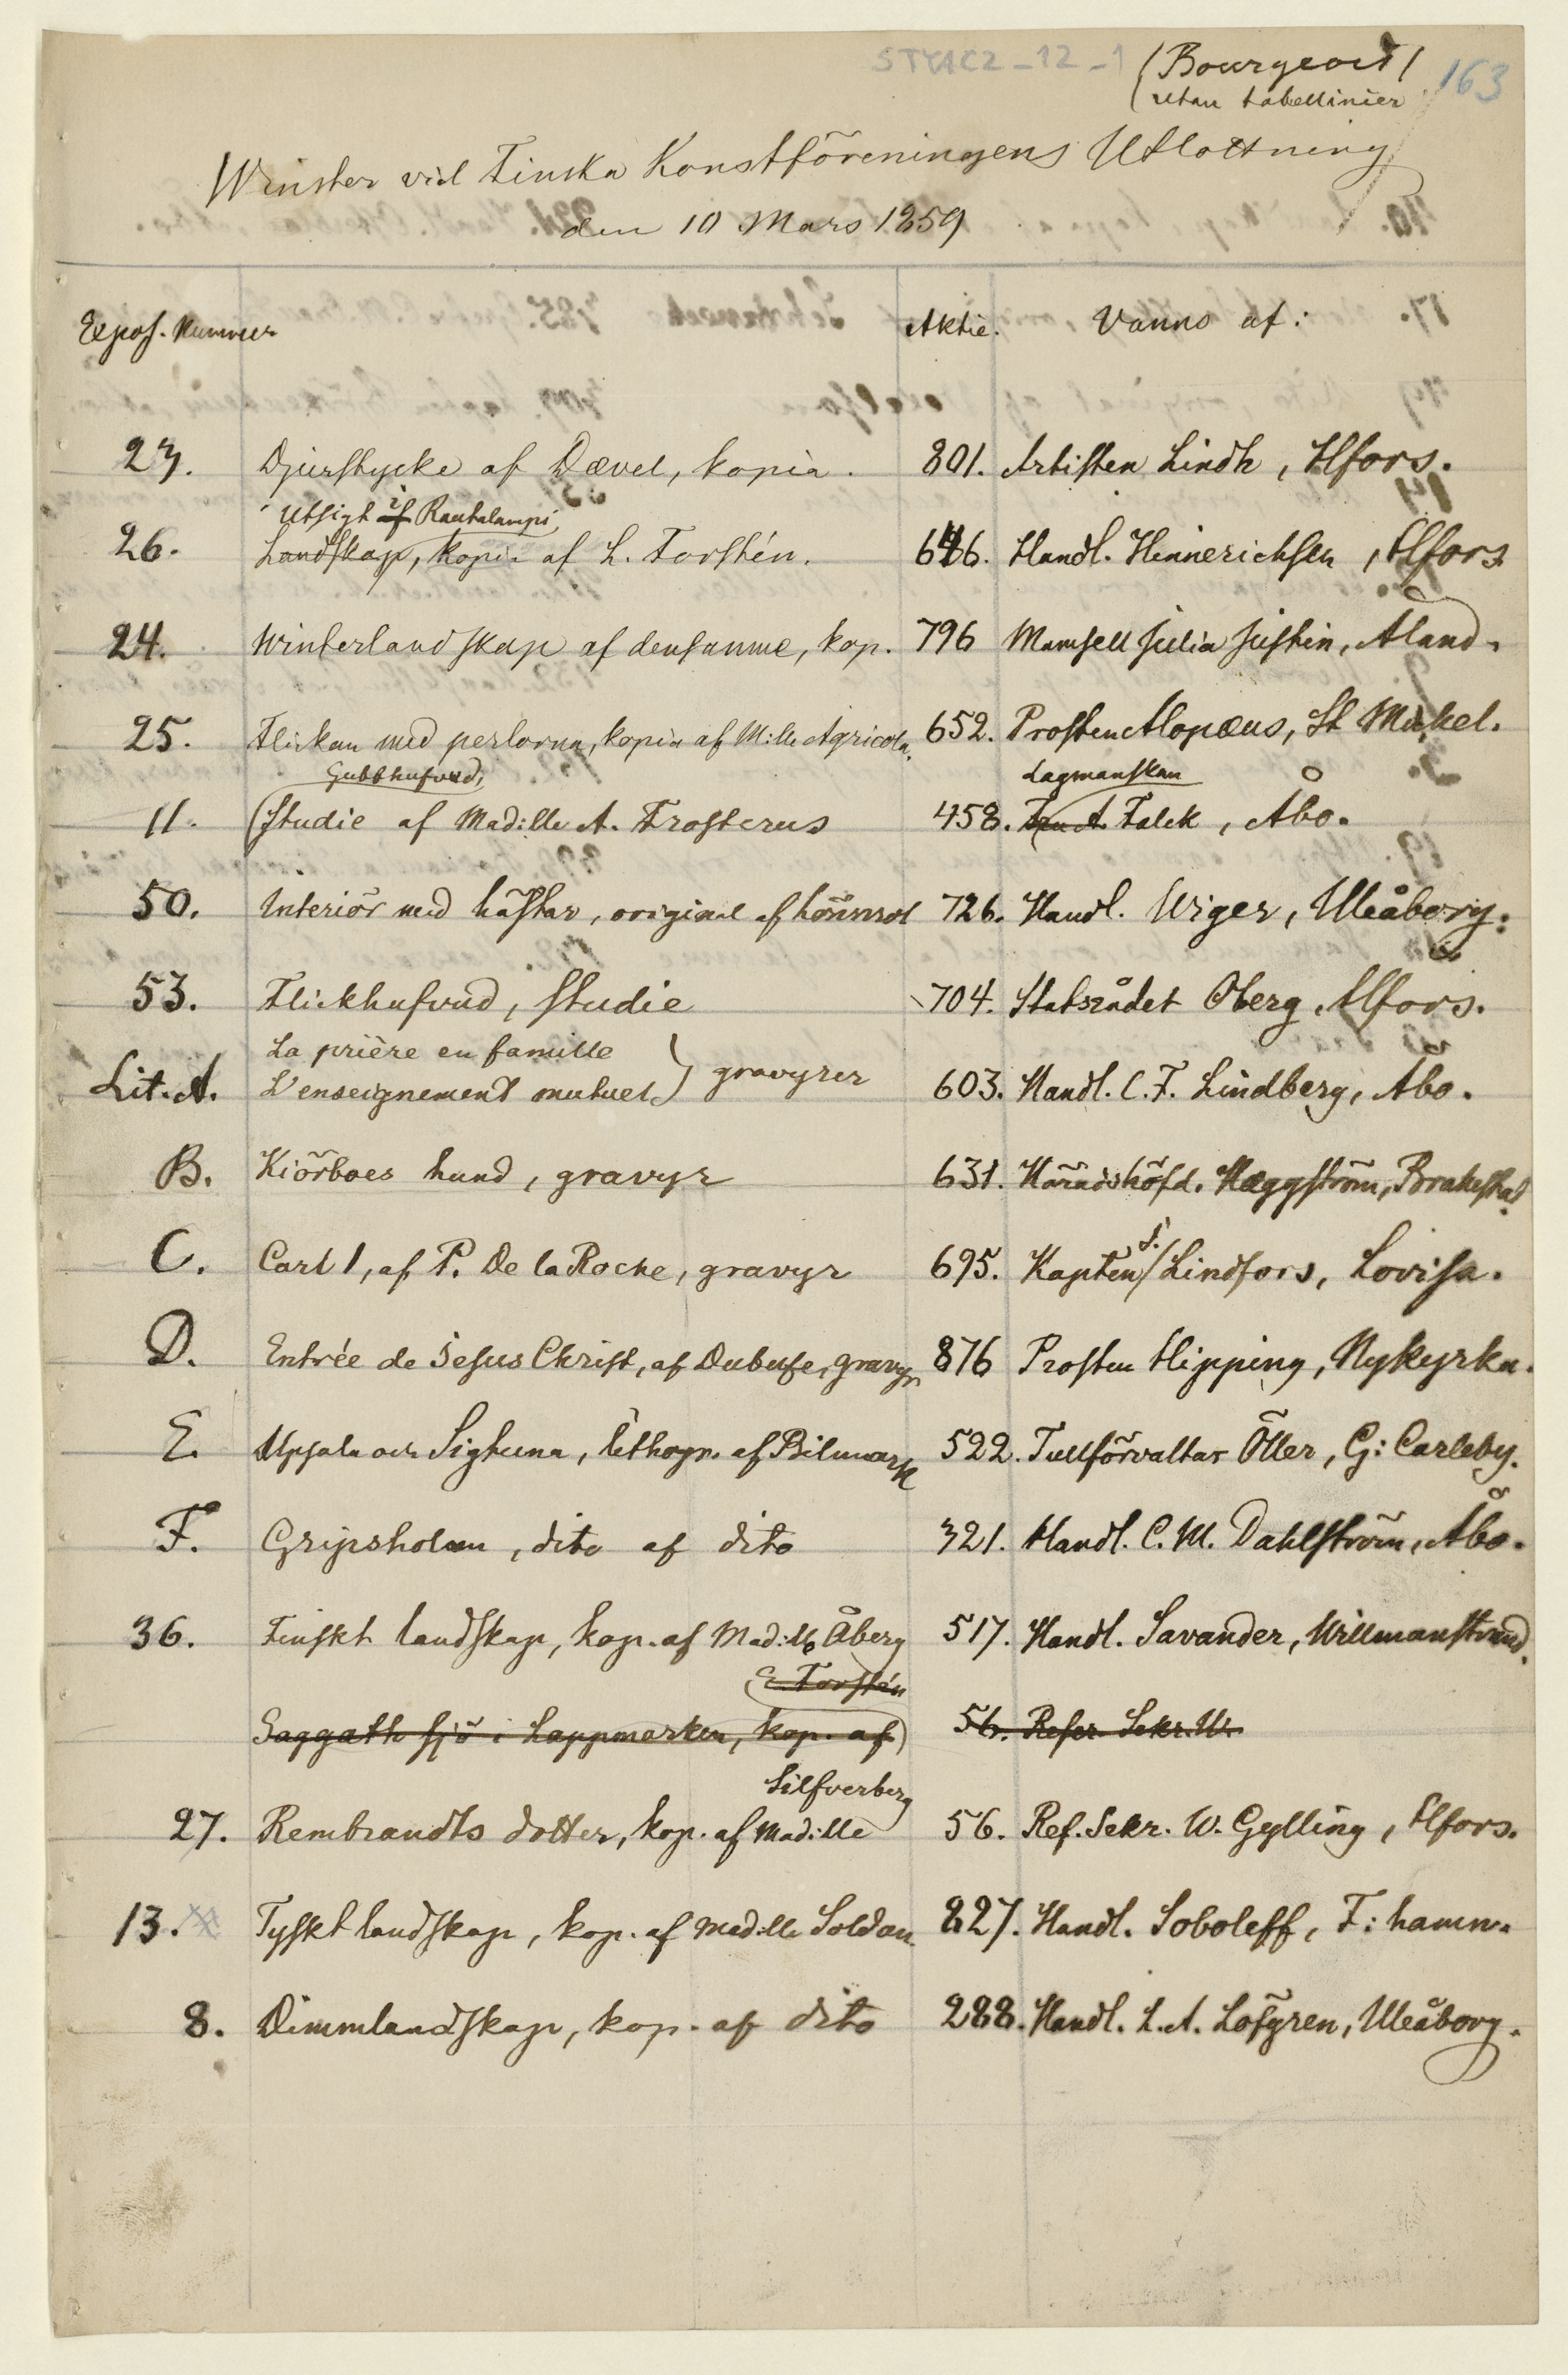 STYAC2-12-1 (Bourgeois) 163
(utan tabellinier
Winster vid Finska Konstföreningens Utlottning
den 10 Mars 1859
Expos. Nummer Aktie. Vanns af:
23. Djurstycke af Dævel, kopia. 801. Artisten Lindh, Hfors.
Utsigt if Rautalampi
26. Landskap, kopia af L. Forstén. Handl. Hinnerichsen, Hfors
24. Winterlandskap af densamme, kop. 796 Mamsell Julia Justin, Åland.
25. Flickan med perlorna, kopia af M:lle Agricola. 652. Prosten Alopæus, St Mickel.
Gubbhufvud, Lagmanskan
11. (Studie af Mad:lle A. Frosterus 458. Fru A. Falck, Åbo.
50. Interiör med hästar, original af Lönnrot 726. Handl. Wiger, Uleåborg.
53. Flickhufvud, studie 704. Statsrådet Öberg, Hfors.
La prière en famille
Lit. A. L'enseignement mutuel } gravyrer 603. Handl. C. F. Lindberg, Åbo.
B. Kiörboes hund, gravyr 631. Häradshöfd. Hæggström, Brahestad
C. Carl 1, af P. De la Roche, gravyr 695. Kapten J. Lindfors, Lovisa.
D. Entrée de Jesus Christ, af Dubufe, gravyr 876 Prosten Hipping, Nykyrka.
E. Upsala och Sigtuna, lithogr. af Billmark 522. Tullförvaltar Öller, G: Carleby.
F. Gripsholm, dito af dito 321. Handl. C. M. Dahlström, Åbo.
36. Finskt landskap, kop. af Mad:lle Åberg 517. Handl. Savander, Willmanstrand.
E. Forstén
Saggath sjö i Lappmarken, kop. af 56. Refer. Sekr. W.
Silfverberg
27. Rembrandts dotter, kop. af Mad:lle 56. Ref. Sekr. W. Gylling, Hfors.
13. Tyskt landskap, kop. af Mad:lle Soldan 827. Handl. Soboleff, F: hamn.
8. Dimmlandskap, kop. af dito 288. Handl. L. A. Löfgren, Uleåborg.